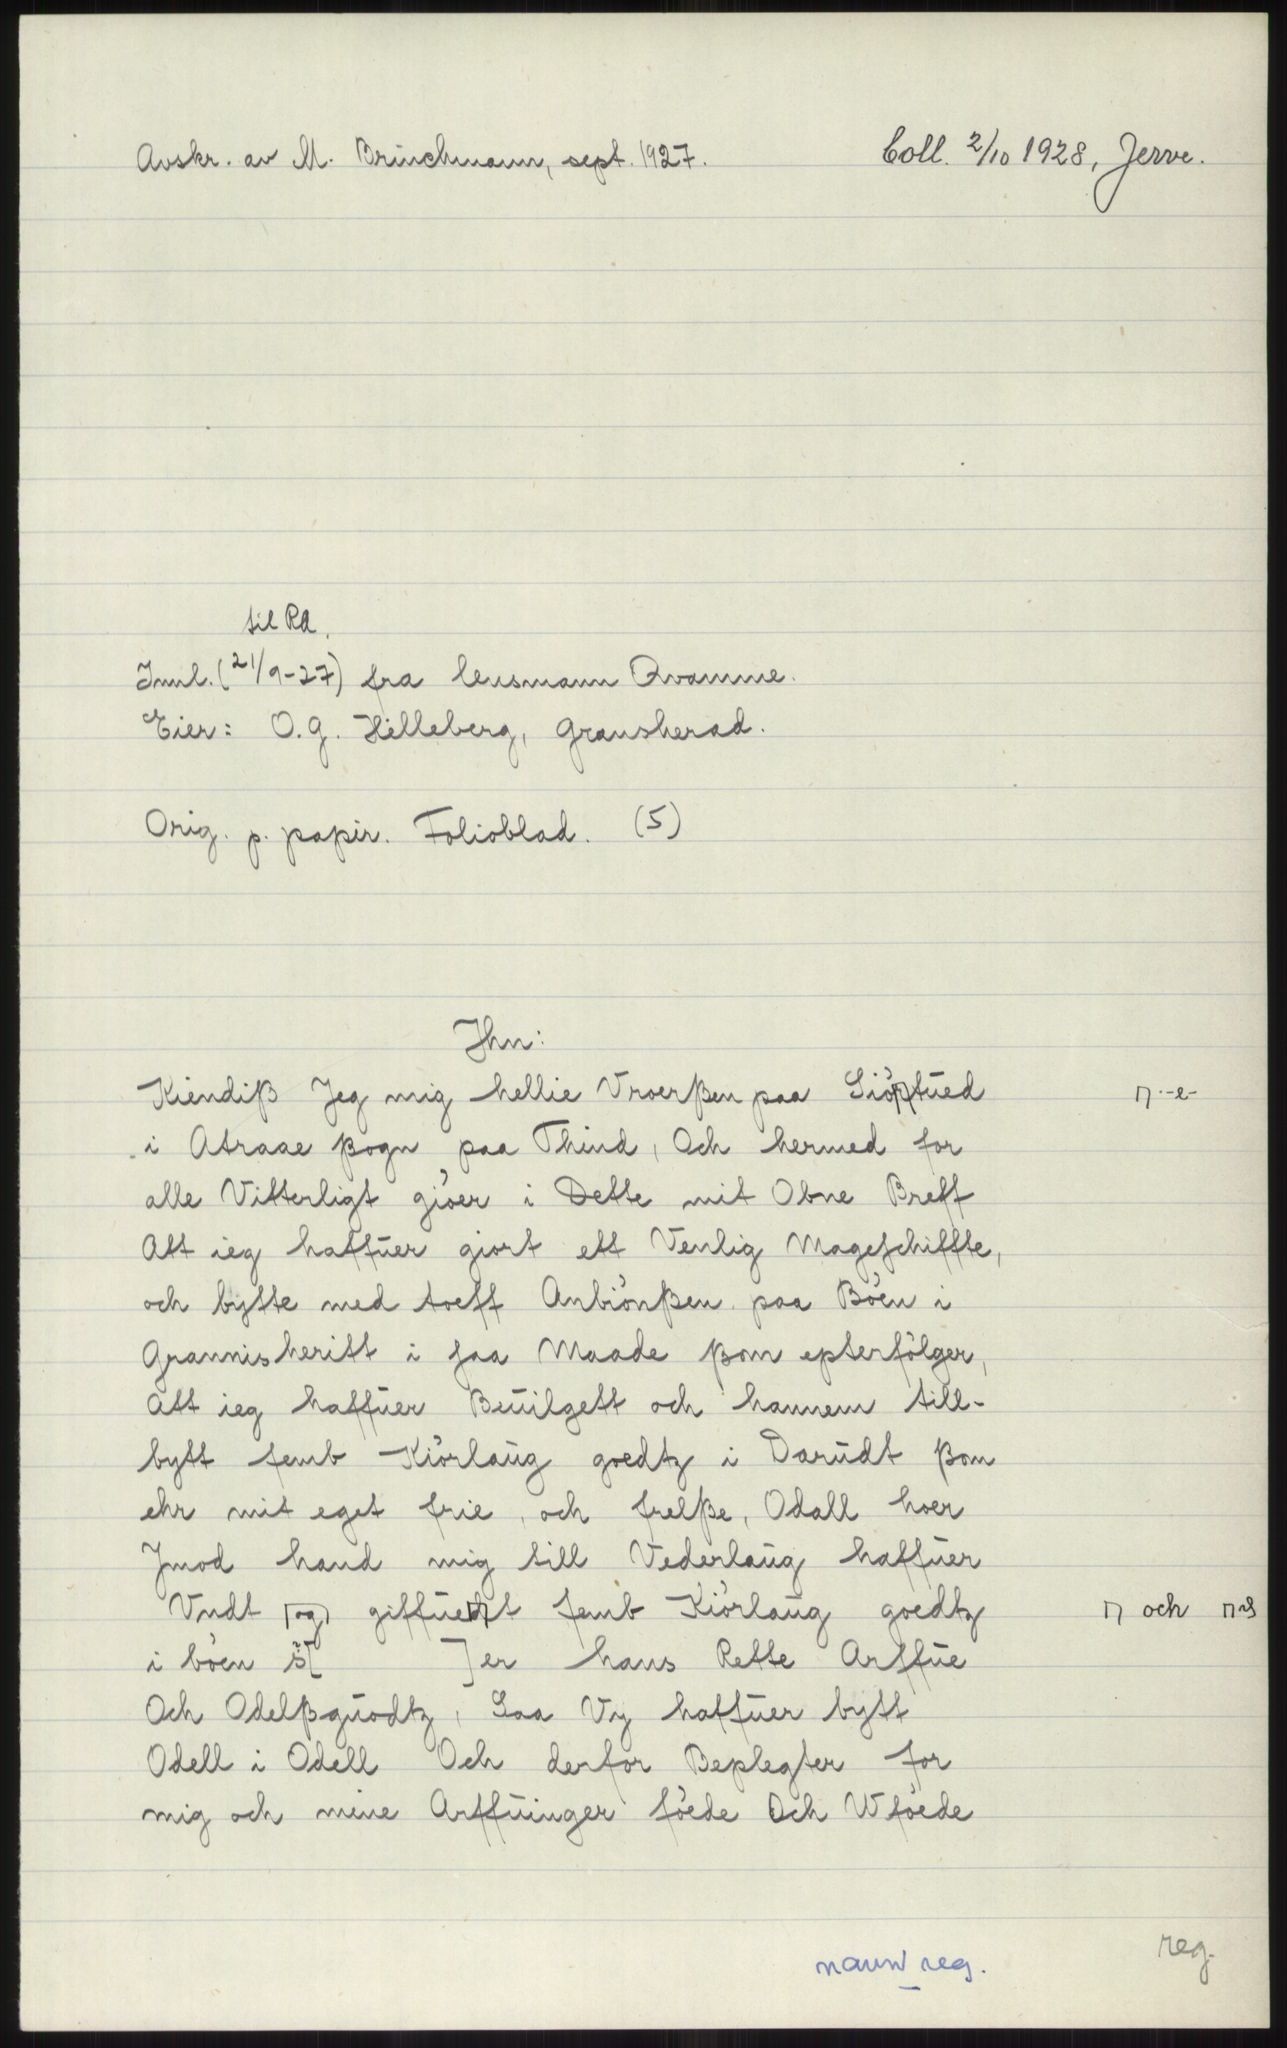 Avskr. av M. Brinchmann, sept. 1927.
Coll. 2/10 1928, Jerve.
til RA.
Innl. (21/9-27) fra lensmann Qvamme.
Eier: O. G. Hilleberg, Gransherad.
Orig. p. papir. Folioblad. (5)
Jhn:
Kiendiß Jeg mig hellie Vroerßen paa Siö tued
i Atraae ßogn paa Thind, Och hermed for
alle Vitterligt giöer i Dette mit Obne Breff
Att ieg haffuer giort ett Venlig Mageschiffte,
och bytte med toeff Anbiönßen paa Böen i
Grannisheritt i saa Maade ßom epterfölger,
att ieg haffuer Beuilgett och hannem till-
bytt femb Kiörlaug goedtz i Darudt ßom
ehr mit eget frie, och frelße, Odall hoer
Jmod hand mig till Vederlaug haffuer
Vndt ⌈og⌉ giffue t femb Kiörlaug goedtz
⌈⌉ och
i böen s[ ]er hans Rette Arffue
Och Odelßguodtz, Saa Vy haffuer bytt
Odell i Odell Och derfor Beplegter for
mig och mine Arffuinger föede Och Wföede
navn reg.
reg.